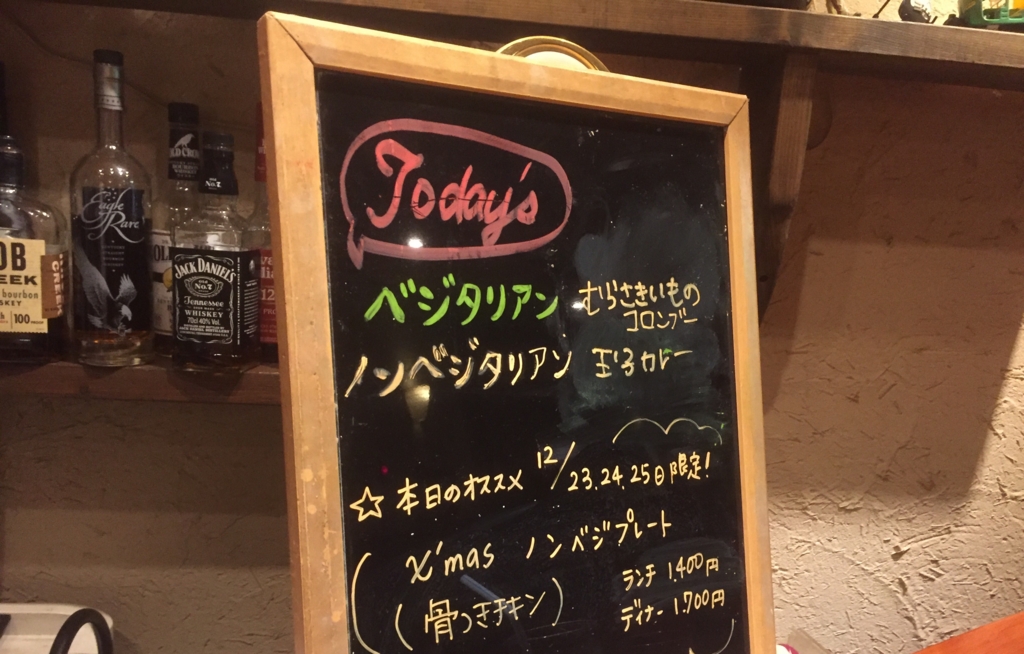 Today's
ベジタリアン むらさきいもの
コロンブー
ノンベジタリアン 玉子カレー
☆本日のオススメ 12/23.24.25日限定!
X'mas ノンベジプレート
(骨つきチキン)
ランチ 1.400円
ディナー 1.700円
Eagle
Rare
OLD CROW
No.7
JACK DANIEL'S
OLD
No.7
Tennessee
WHISKEY
70cl 40% Vol.
OB
EEK
bourbon
SKEY
100 PROOF
CREEK
12